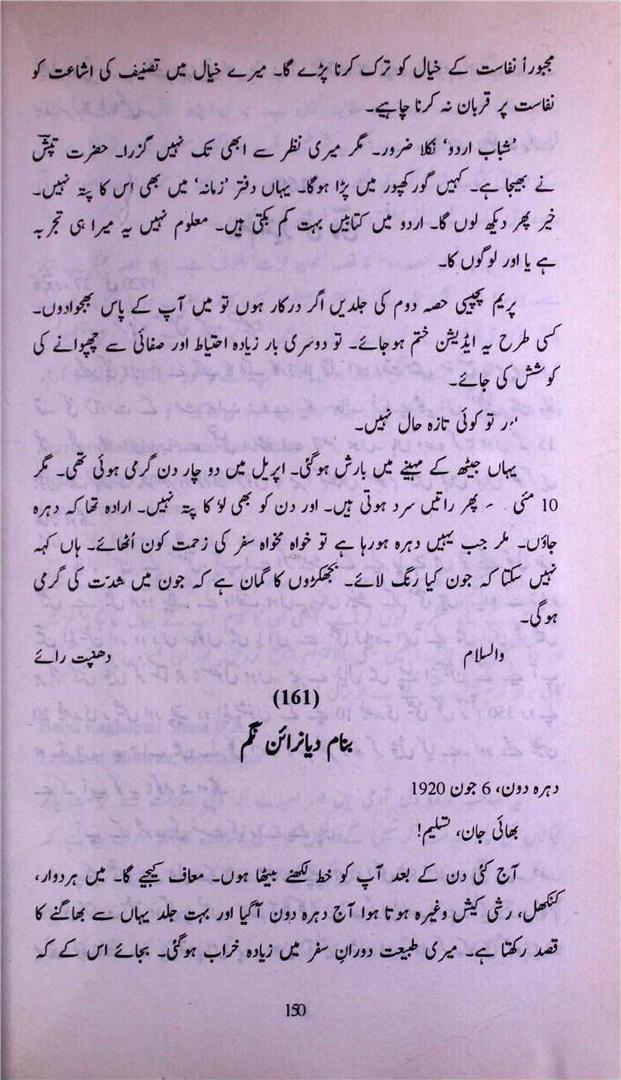 مجبوراً نفاست کے خیال کو ترک کرنا پڑے گا۔ میرے خیال میں تصنیف کی اشاعت کو
نفاست پر قربان نہ کرنا چاہیے۔
'شباب اردو' نکلا ضرور۔ مگر میری نظر سے ابھی تک نہیں گزرا۔ حضرت تپشؔ
نے بھیجا ہے۔ کہیں گورکھپور میں پڑا ہوگا۔ یہاں دفتر 'زمانہ' میں بھی اس کا پتہ نہیں۔
خیر پھر دیکھ لوں گا۔ اردو میں کتابیں بہت کم بکتی ہیں۔ معلوم نہیں یہ میرا ہی تجربہ
ہے یا اور لوگوں کا۔
پریم پچیسی حصہ دوم کی جلدیں اگر درکار ہوں تو میں آپ کے پاس بھجوادوں۔
کسی طرح یہ ایڈیشن ختم ہوجائے۔ تو دوسری بار زیادہ احتیاط اور صفائی سے چھپوانے کی
کوشش کی جائے۔
تو کوئی تازہ حال نہیں۔
یہاں جیٹھ کے مہینے میں بارش ہوگئی۔ اپریل میں دو چار دن گرمی ہوئی تھی۔ مگر
10 مئی پھر راتیں سرد ہوتی ہیں۔ اور دن کو بھی لؤ کا پتہ نہیں۔ ارادہ تھا کہ دہرہ
جاؤں۔ مگر جب یہیں دہرہ ہورہا ہے تو خواہ مخواہ سفر کی زحمت کون اُٹھائے۔ ہاں کہہ
نہیں سکتا کہ جون کیا رنگ لائے۔ بجھکڑوں کا گمان ہے کہ جون میں شدّت کی گرمی
ہوگی۔
والسلام دھنپت رائے
(161)
بنام دیانرائن نگم
دہرہ دون، 6 جون 1920
بھائی جان، تسلیم!
آج کئی دن کے بعد آپ کو خط لکھنے بیٹھا ہوں۔ معاف کیجیے گا۔ میں ہردوار،
کنکھل، رشی کیش وغیرہ ہوتا ہوا آج دہرہ دون آگیا اور بہت جلد یہاں سے بھاگنے کا
قصد رکھتا ہے۔ میری طبیعت دورانِ سفر میں زیادہ خراب ہوگئی۔ بجائے اس کے کہ
150